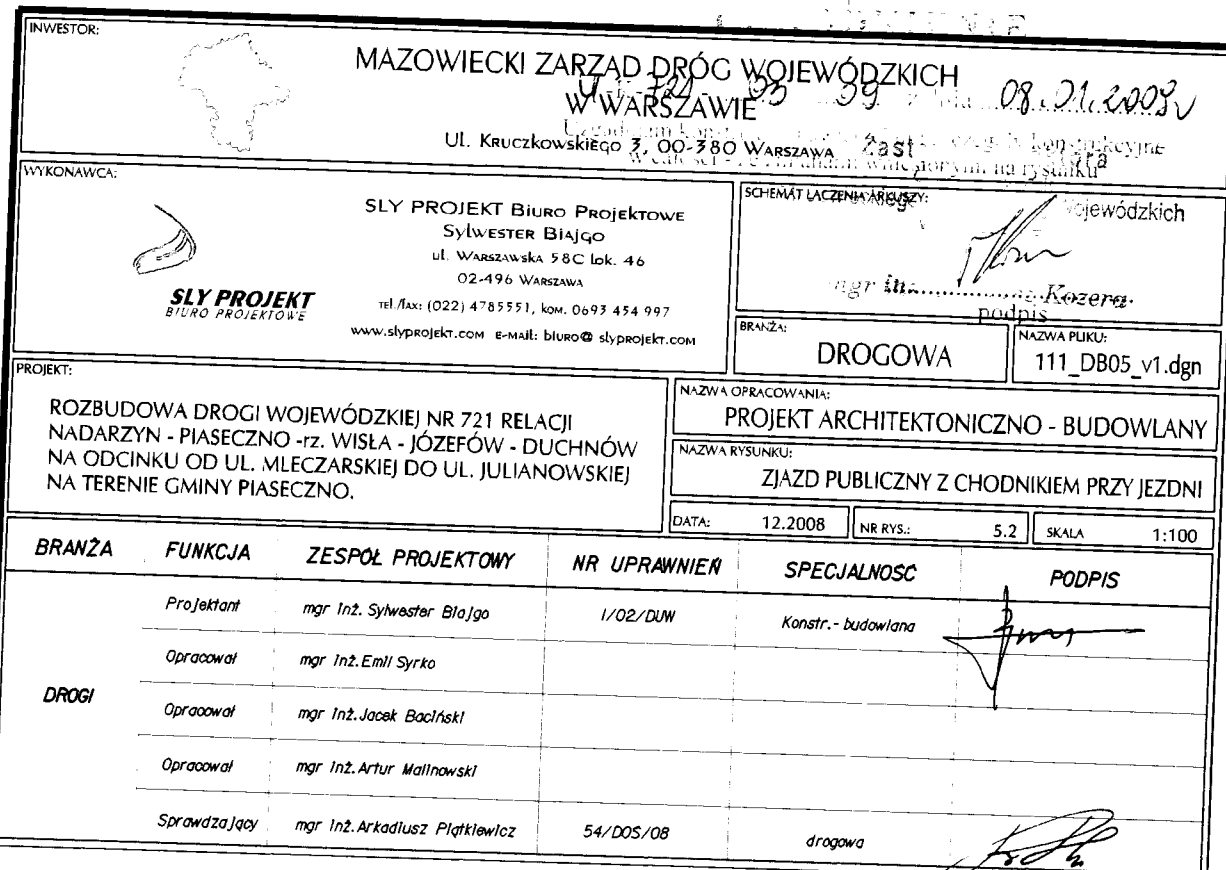 INWESTOR:
MAZOWIECKI ZARZĄD DRÓG WOJEWÓDZKICH
W WARSZAWIE
08.01.2009r
Ul. Kruczkowskiego 3, 00-380 Warszawa
WYKONAWCA:
SLY PROJEKT Biuro Projektowe
Sylwester Biajgo
ul. Warszawska 58C lok. 46
02-496 Warszawa
tel./fax: (022) 4785551, kom. 0693 454 997
www.slyprojekt.com e-mail: biuro@slyprojekt.com
SLY PROJEKT
BIURO PROJEKTOWE
SCHEMAT ŁĄCZENIA ARKUSZY:
Wojewódzkich
mgr inż. Kozera
podpis
BRANŻA:
DROGOWA
NAZWA PLIKU:
111_DB05_v1.dgn
PROJEKT:
ROZBUDOWA DROGI WOJEWÓDZKIEJ NR 721 RELACJI
NADARZYN - PIASECZNO -rz. WISŁA - JÓZEFÓW - DUCHNÓW
NA ODCINKU OD UL. MLECZARSKIEJ DO UL. JULIANOWSKIEJ
NA TERENIE GMINY PIASECZNO.
NAZWA OPRACOWANIA:
PROJEKT ARCHITEKTONICZNO - BUDOWLANY
NAZWA RYSUNKU:
ZJAZD PUBLICZNY Z CHODNIKIEM PRZY JEZDNI
DATA: 12.2008 NR RYS.: 5.2 SKALA 1:100
BRANŻA FUNKCJA ZESPÓŁ PROJEKTOWY NR UPRAWNIEŃ SPECJALNOŚĆ PODPIS
Projektant mgr inż. Sylwester Biajgo 1/02/DUW Konstr.- budowlana
Opracował mgr inż. Emil Syrko
DROGI
Opracował mgr inż. Jacek Baciński
Opracował mgr inż. Artur Malinowski
Sprawdzający mgr inż. Arkadiusz Piątkiewicz 54/DOŚ/08 drogowa